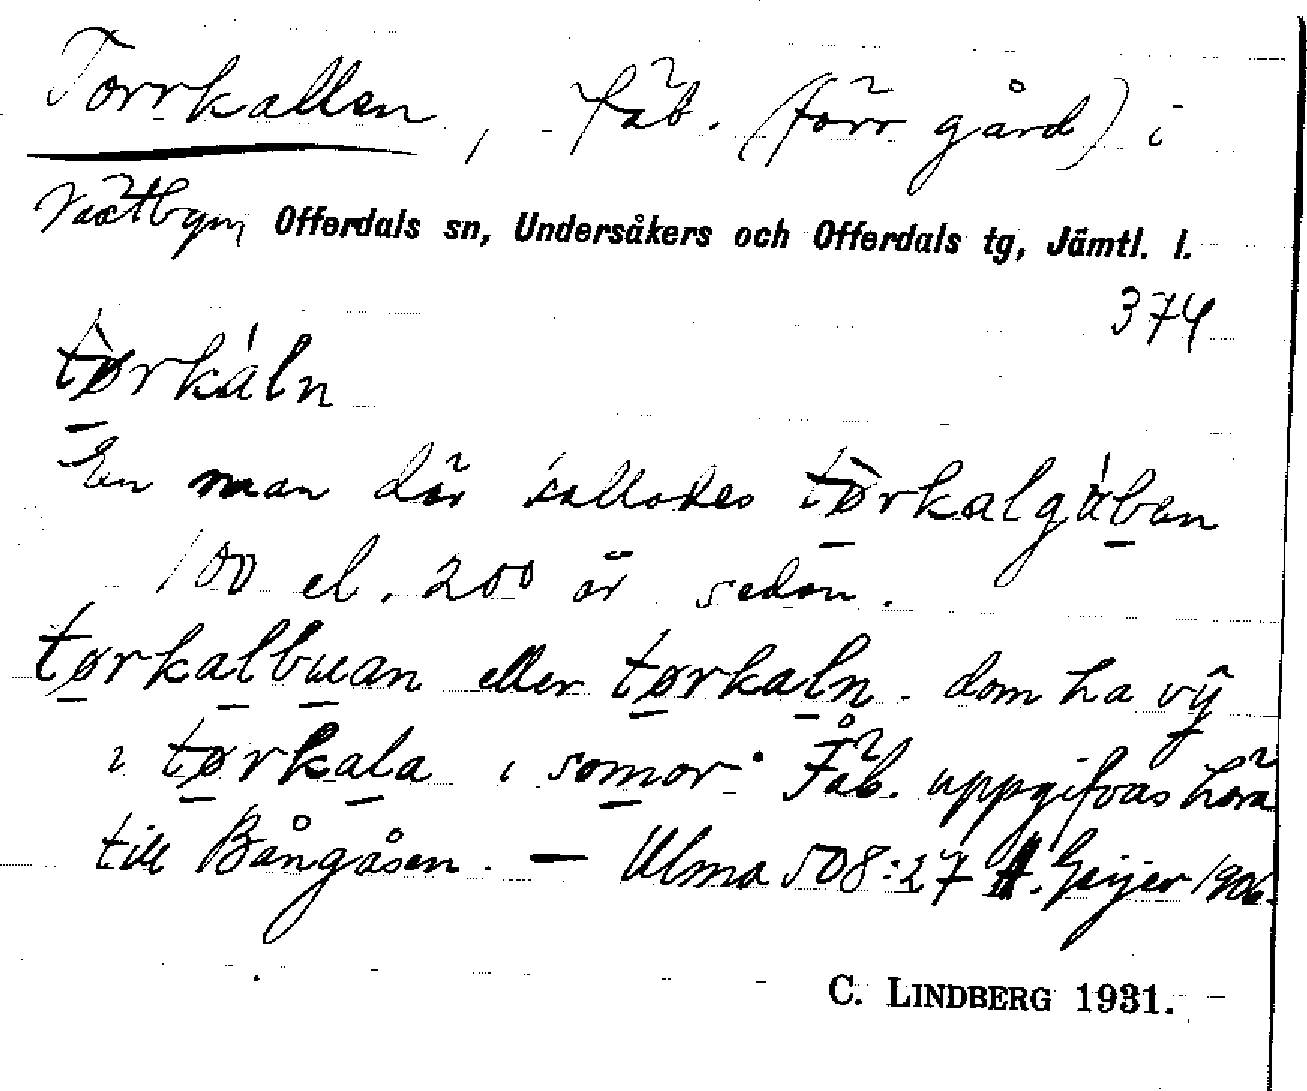 Torrkallen, fäb. (förr gård) i
Västbyn Offerdals sn, Undersåkers och Offerdals tg, Jämtl. l.
374
tø̀rkáln
En man där kallades tø̀rkalgúben
100 el. 200 år sedan.
tørkalbuan eller tørkaln. dom ha vÿ
i tørkala i somor. Fäb. uppgifvas höra
till Bångåsen. — Ulma 508:27 H. Geijer 1906.
C. LINDBERG 1931.